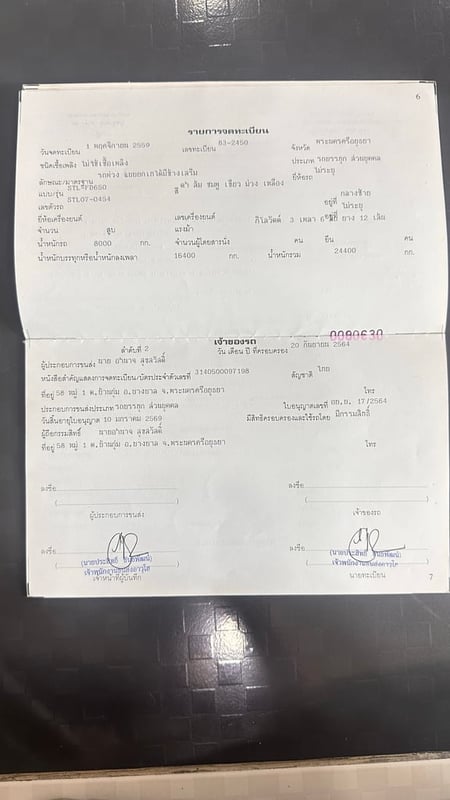 6
รายการจดทะเบียน
วันจดทะเบียน 1 พฤศจิกายน 2559 เลขทะเบียน 83-2450 จังหวัด พระนครศรีอยุธยา
ชนิดเชื้อเพลิง ไม่ใช้เชื้อเพลิง ประเภท รถบรรทุก ส่วนบุคคล
ลักษณะ/มาตรฐาน รถพ่วง แบบยกเทได้มีข้างเสริม ยี่ห้อรถ ไม่ระบุ
แบบ/รุ่น STL-FD650 สี ดำ ส้ม ชมพู เขียว ม่วง เหลือง
เลขตัวรถ STL07-0454 อยู่ที่ กลางซ้าย
ยี่ห้อเครื่องยนต์ เลขเครื่องยนต์ อยู่ที่ ไม่ระบุ
จำนวน สูบ แรงม้า กิโลวัตต์ 3 เพลา ล้อ ยาง 12 เส้น
น้ำหนักรถ 8000 กก. จำนวนผู้โดยสารนั่ง คน ยืน คน
น้ำหนักบรรทุกหรือน้ำหนักลงเพลา 16400 กก. น้ำหนักรวม 24400 กก.
0080630
เจ้าของรถ
ลำดับที่ 2 วัน เดือน ปี ที่ครอบครอง 20 กันยายน 2564
ผู้ประกอบการขนส่ง นาย อำนาจ สุขสวัสดิ์
หนังสือสำคัญแสดงการจดทะเบียน/บัตรประจำตัวเลขที่ 3140500097198 สัญชาติ ไทย
ที่อยู่ 58 หมู่ 1 ต.บ้านกุ่ม อ.บางบาล จ.พระนครศรีอยุธยา โทร
ประกอบการขนส่งประเภท รถบรรทุก ส่วนบุคคล ใบอนุญาตเลขที่ อย.บ. 17/2564
วันสิ้นอายุใบอนุญาต 10 มกราคม 2569 มีสิทธิครอบครองและใช้รถโดย มีกรรมสิทธิ์
ผู้ถือกรรมสิทธิ์ นายอำนาจ สุขสวัสดิ์
ที่อยู่ 58 หมู่ 1 ต.บ้านกุ่ม อ.บางบาล จ.พระนครศรีอยุธยา โทร
ลงชื่อ ลงชื่อ
( ) ( )
ผู้ประกอบการขนส่ง เจ้าของรถ
ลงชื่อ ลงชื่อ
(นายประสิทธิ์ ) (นายประสิทธิ์ )
เจ้าพนักงานขนส่งอาวุโส เจ้าพนักงานขนส่งอาวุโส
เจ้าหน้าที่ผู้บันทึก นายทะเบียน
7